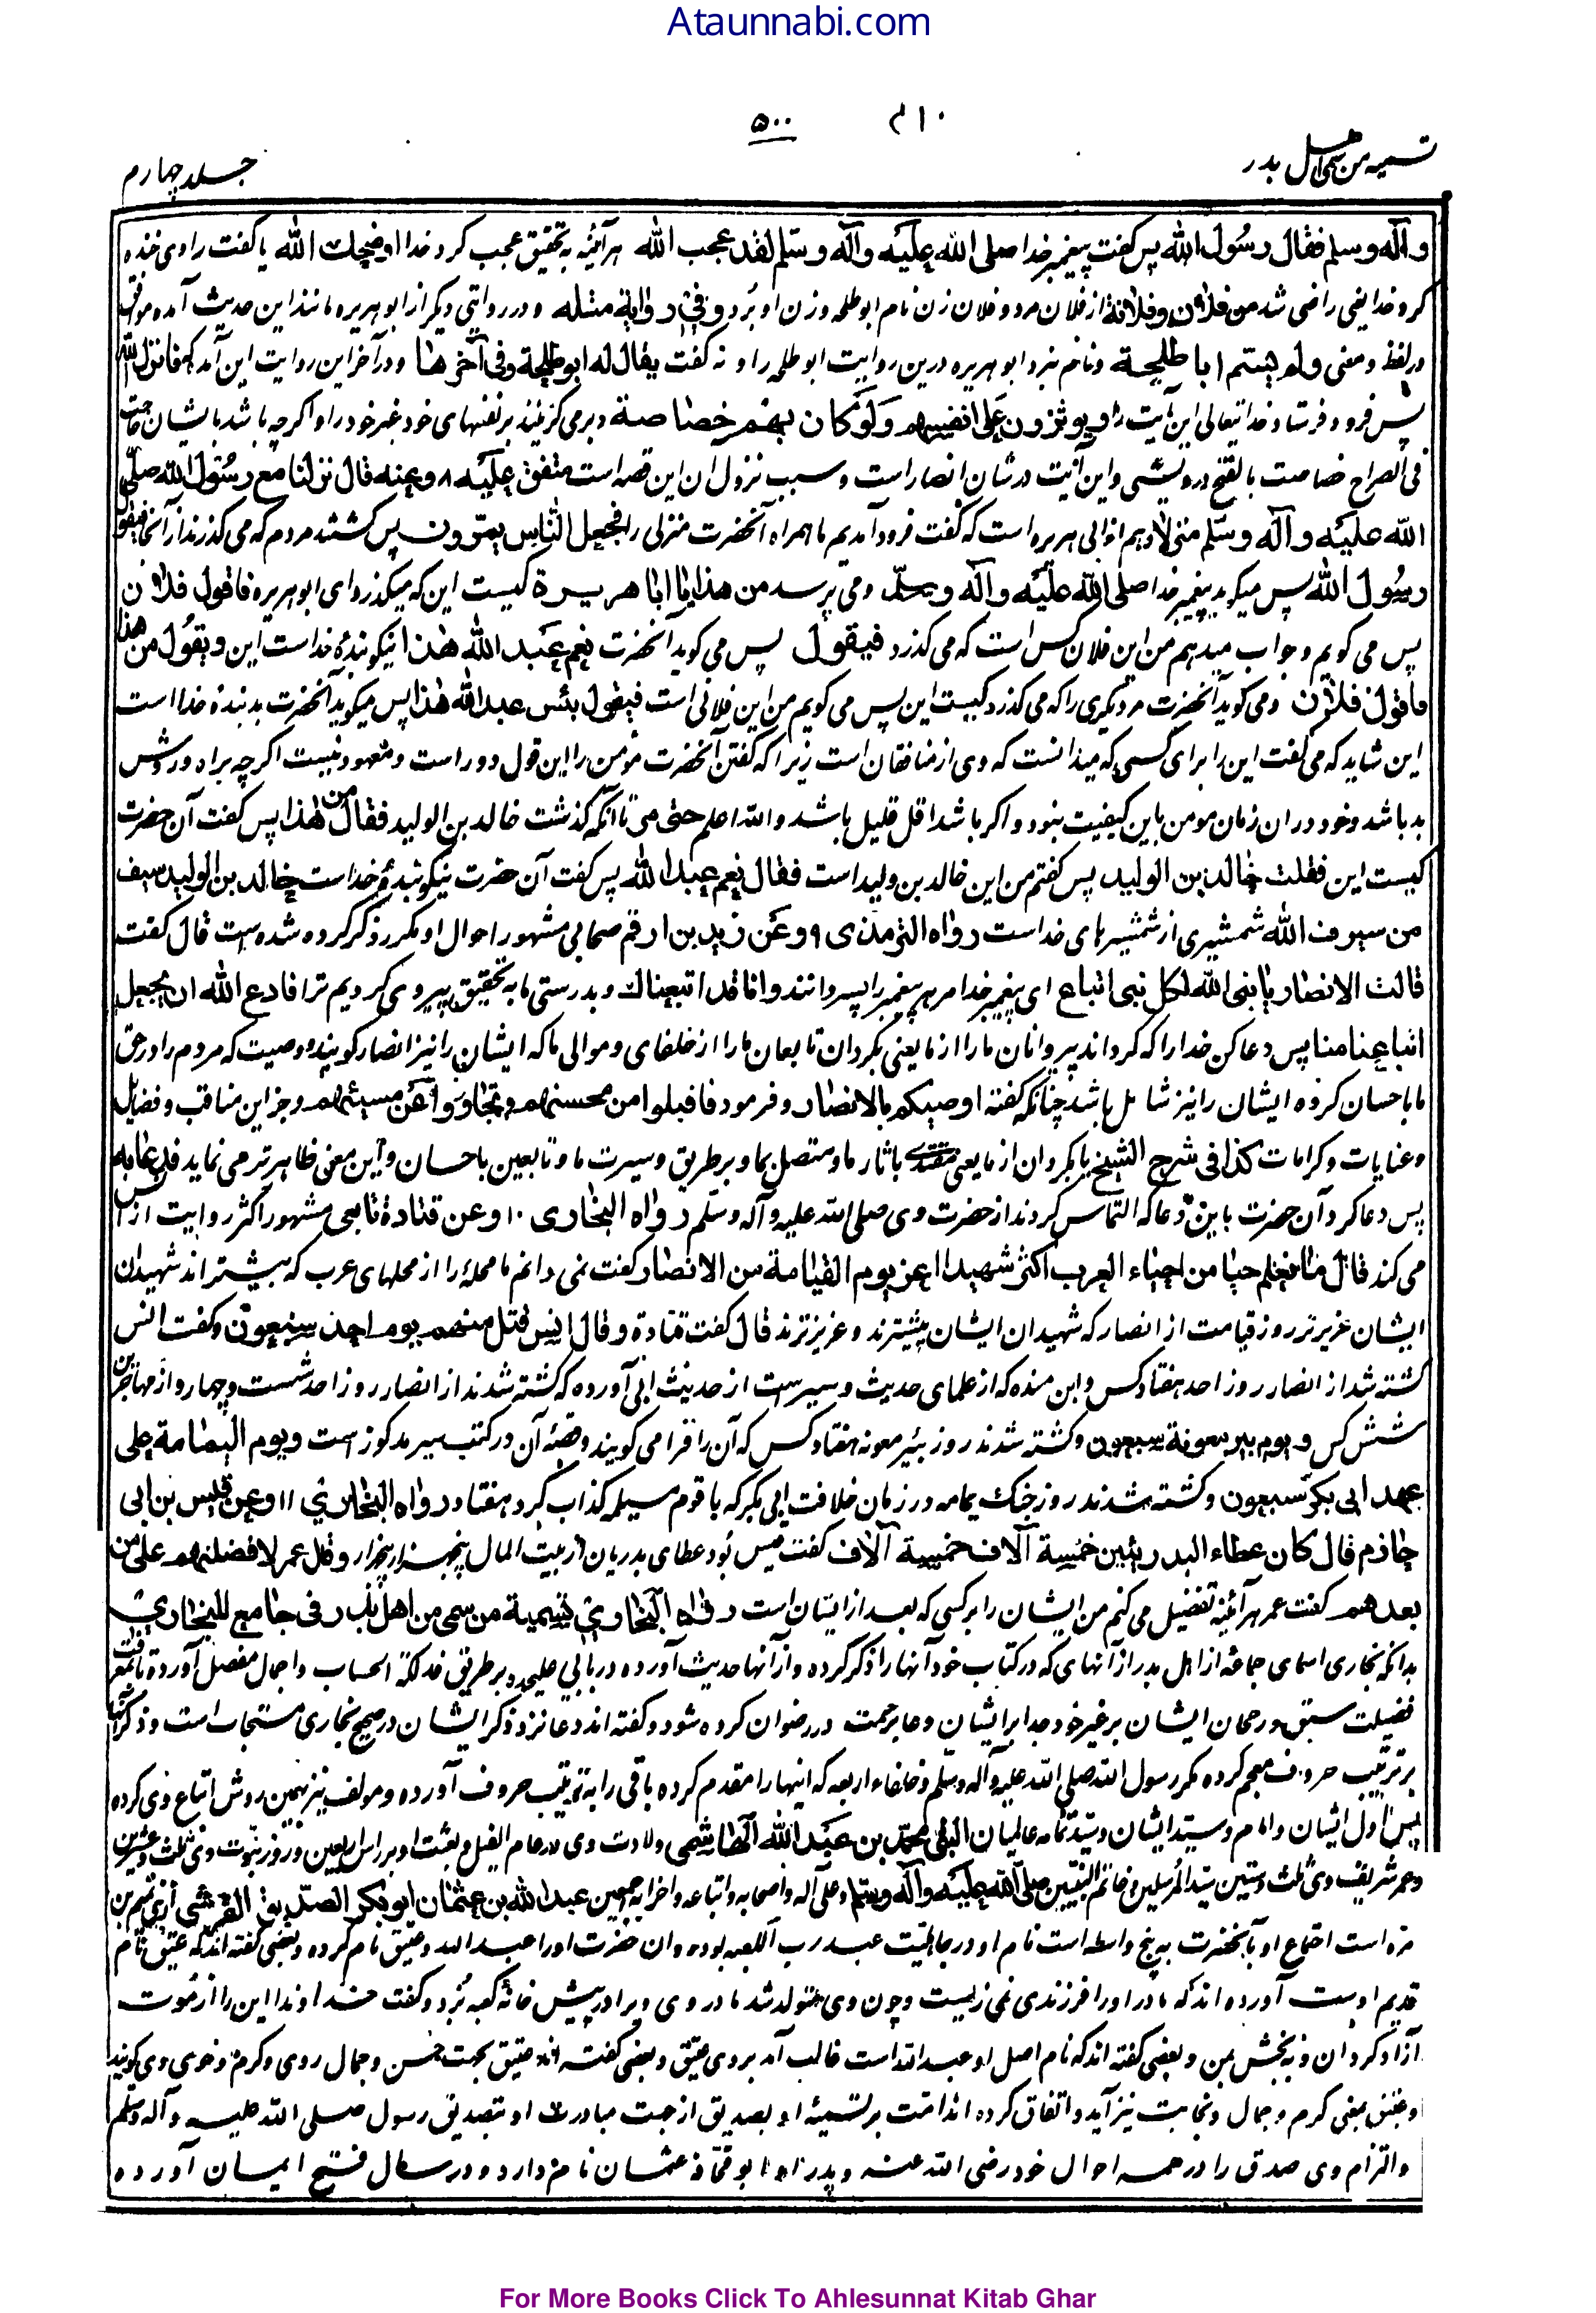 Ataunnabi.com
۵۰۰
تسمیه من سمی اهل بدر
جلد چهارم
وآله وسلم فقال رسول الله پس گفت پیغمبر خدا صلی الله علیه وآله وسلم لقد عجب الله هرآئینه به تحقیق عجب کرد خدا او ضحک الله یا گفت راوی خنده
کرد خدا یعنی راضی شد من فلان وفلانة از فلان مرد و فلان زن نام ابو طلحه و زن او برد وفی روایة مثله و در روایتی دیگر از ابو هریره مانند این حدیث آمده موافق
در لفظ و معنی ولم یسم ابا طلحة و نام نبرد ابو هریره درین روایت ابو طلحه را و نه گفت یقال له ابو طلحة وفی آخرها و در آخر این روایت این آمد که فانزل الله
پس فرود فرستاد خدا تعالی این آیت را ویوثرون علی انفسهم ولو کان بهم خصاصة و بر می گزینند بر نفسهای خود غیر خود را و اگرچه باشد بایشان حاجت
فی الصراح خصاصت بالفتح درویشی و این آیت در شان انصار است و سبب نزول آن این قصه است متفق علیه ۸ وعنه قال نزلنا مع رسول الله صلی
الله علیه وآله وسلم منزلا و هم از ابی هریره است که گفت فرود آمدیم ما همراه آنحضرت منزلی را فجعل الناس یمرون پس گشتند مردم که می گذرند از آنجا فیقول
رسول الله پس میگوید پیغمبر خدا صلی الله علیه وآله وسلم و می پرسد من هذا یا ابا هریرة کیست این که میگذرد ای ابو هریره فاقول فلان
پس می گویم و جواب میدهم من این فلان کس است که می گذرد فیقول پس می گوید آنحضرت نعم عبد الله هذا نیکو بندهٔ خداست این ویقول من هذا
فاقول فلان و می گوید آنحضرت مر دیگری را که می گذرد کیست این پس می گویم من این فلانی است فیقول بئس عبد الله هذا پس میگوید آنحضرت بد بندهٔ خدا است
این شاید که می گفت این را برای کسی که میدانست که وی از منافقان است زیرا که گفتن آنحضرت مؤمن را این قول دور است و معهود نیست اگرچه براه و روش
بد باشد و خود در ان زمان مومن باین کیفیت نبود و اگر باشد اقل قلیل باشد والله اعلم حتی مر تا آنکه گذشت خالد بن الولید فقال من هذا پس گفت آن حضرت
کیست این فقلت خالد بن الولید پس گفتم من این خالد بن ولید است فقال نعم عبد الله پس گفت آن حضرت نیکو بندهٔ خداست خالد بن الولید سیف
من سیوف الله شمشیری از شمشیرهای خداست رواه الترمذی ۹ وعن زید بن ارقم صحابی مشهور احوال او مکرر ذکر کرده شده است قال گفت
قالت الانصار یا نبی الله لکل نبی اتباع ای پیغمبر خدا مر هر پیغمبر را پسروانند وانا قد اتبعناک و بدرستی ما به تحقیق پیروی کردیم ترا فادع الله ان یجعل
اتباعنا منا پس دعا کن خدا را که گرداند پیروانان ما را از ما یعنی بگردان تابعان ما را از خلفای و موالی ما که ایشان را نیز انصار گویند و وصیت که مردم را در حق
ما باحسان کرده ایشان را نیز شامل باشد چنانکه گفته اوصیکم بالانصار و فرمود فاقبلوا من محسنهم وتجاوزوا عن مسیئهم و جز این مناقب و فضایل
و عنایات و کرامات کذا فی شرح الشیخ یا بگردان از ما یعنی مقتدی باثار ما و متصل بما و بر طریق و سیرت ما و تابعین باحسان و این معنی ظاهرتر می نماید فدعا به
پس دعا کرد آن حضرت باین دعا که التماس کردند از حضرت وی صلی الله علیه وآله وسلم رواه البخاری ۱۰ وعن قتادة تابعی مشهور اکثر روایت از انس
می کند قال ما نعلم حیا من احیاء العرب اکثر شهیدا اعز یوم القیامة من الانصار گفت نمی دانم ما محله را از محلهای عرب که بیشتر اند شهیدان
ایشان عزیزتر روز قیامت از انصار که شهیدان ایشان بیشترند و عزیزترند قال گفت قتادة وقال انس قتل منهم یوم احد سبعون و گفت انس
کشته شد از انصار روز احد هفتاد کس و ابن منده که از علمای حدیث و سیر است از حدیث ابی آورده که کشته شدند از انصار روز احد شصت و چهار و از مهاجرین
شش کس و یوم بئر معونة سبعون و کشته شدند روز بئر معونه هفتاد کس که آن را قرا می گویند و قصهٔ آن در کتب سیر مذکور است ویوم الیمامة علی
عهد ابی بکر سبعون و کشته شدند روز جنگ یمامه در زمان خلافت ابی بکر که با قوم مسیلمه کذاب کرد هفتاد رواه البخاری ۱۱ وعن قیس بن ابی
حازم قال کان عطاء البدریین خمسة آلاف خمسة آلاف گفت قیس بود عطای بدریان از بیت المال پنجهزار پنجهزار وقال عمر لافضلنهم علی من
بعدهم گفت عمر هرآئینه تفضیل می کنم من ایشان را بر کسی که بعد از ایشان است رواه البخاری تسمیة من سمی من اهل بدر فی جامع للبخاری
بدانکه بخاری اسمای جماعه از اهل بدر از آنهای که در کتاب خود آنها را ذکر کرده و از آنها حدیث آورده در بابی علیحده بر طریق فذلکة الحساب و اجمال مفصل آورده تا معرفت
فضیلت سبق و رجحان ایشان بر غیر خود جدا برای ایشان دعا برحمت و رضوان کرده شود و گفته اند دعا نزد ذکر ایشان در صحیح بخاری مستجاب است و ذکر آنها
بر ترتیب حروف معجم کرده مگر رسول الله صلی الله علیه وآله وسلم و خلفاء اربعه که اینها را مقدم کرده باقی را به ترتیب حروف آورده و مولف نیز بهمین روش اتباع وی کرده
پس اول ایشان و امام و سید ایشان و سید تمامه عالمیان النبی محمد بن عبد الله الهاشمی ولادت وی در عام الفیل و بعثت او بر راس اربعین و روز نبوت وی ثلث و عشرین
و عمر شریف وی ثلث و ستین سید المرسلین و خاتم النبیین صلی الله علیه وآله وسلم وعلی آله واصحابه واتباعه واحزابه اجمعین عبد الله بن عثمان ابو بکر الصدیق القرشی از بنی تیم بن
مره است اجتماع او بآنحضرت به پنج واسطه است نام او در جاهلیت عبد رب الکعبه بوده وان حضرت او را عبد الله و عتیق نام کرده و بعضی گفته اند که عتیق نام
قدیم اوست آورده اند که مادر او را فرزندی نمی زیست و چون وی متولد شد مادر وی ویرا در پیش خانهٔ کعبه برد و گفت خداوندا این را از موت
آزاد گردان و به بخش بمن و بعضی گفته اند که نام اصل او عبد الله است غالب آمد بر وی عتیق و بعضی گفته اند عتیق بجهت حسن و جمال روی و کرم و خوبی وی گویند
و عتق بمعنی کرم و جمال و نجابت نیز آید و اتفاق کرده اند امت بر تسمیهٔ او بصدیق از جهت مبادرت او بتصدیق رسول صلی الله علیه وآله وسلم
و التزام وی صدق را در همه احوال خود رضی الله عنه و پدر او ابو قحافه عثمان نام دارد و در سال فتح ایمان آورده
For More Books Click To Ahlesunnat Kitab Ghar